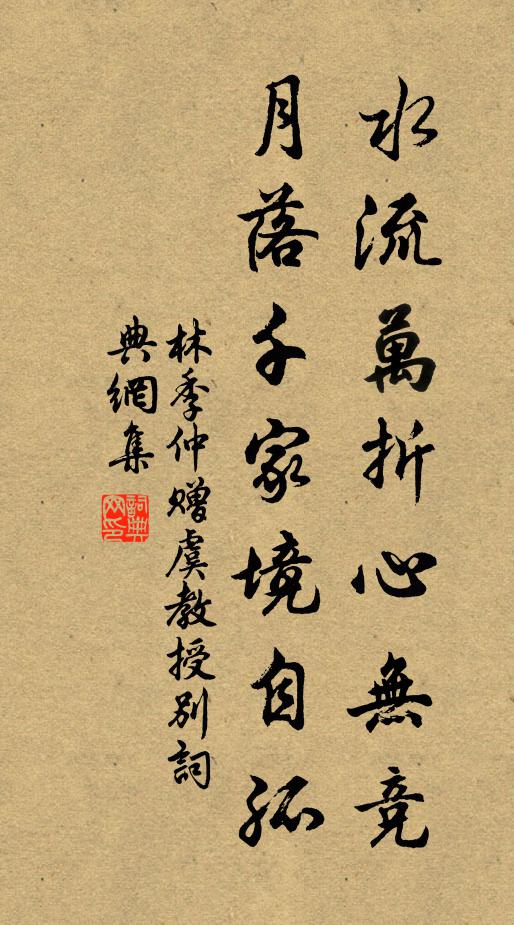 水流萬折心無竞
月落千家境自孤
林季仲贈虞教授別詞
典網集
詞典网印